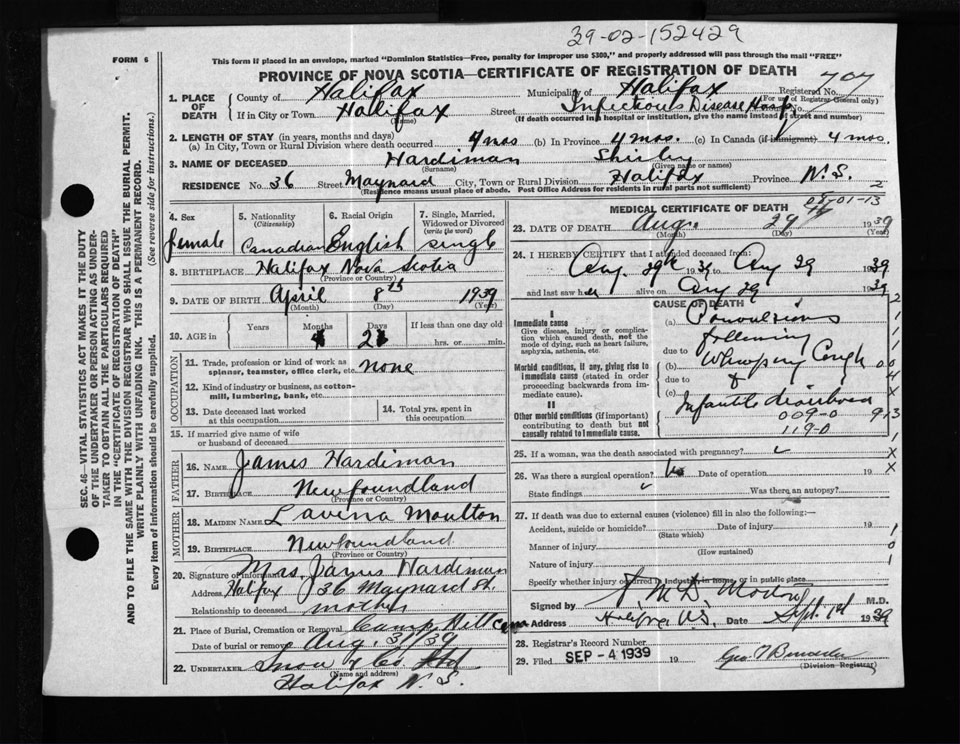 39-02-152429
FORM 6
This form if placed in an envelope, marked "Dominion Statistics—Free, penalty for improper use $300," and properly addressed will pass through the mail "FREE"
PROVINCE OF NOVA SCOTIA—CERTIFICATE OF REGISTRATION OF DEATH
1. PLACE OF DEATH
County of Halifax Municipality of Halifax Registered No. 707
(For use of Registrar-General only)
If in City or Town Halifax Street Infectious Disease Hosp No.
(Name) (If death occurred in a hospital or institution, give the name instead of street and number)
2. LENGTH OF STAY (in years, months and days)
(a) In City, Town or Rural Division where death occurred 4 mos (b) In Province 4 mos. (c) In Canada (if immigrant) 4 mos.
3. NAME OF DECEASED Hardiman Shirley
(Surname) (Given name or names)
RESIDENCE No. 36 Street Maynard City, Town or Rural Division Halifax Province N.S.
(Residence means usual place of abode. Post Office Address for residents in rural parts not sufficient)
4. Sex female
5. Nationality (Citizenship) Canadian
6. Racial Origin English
7. Single, Married, Widowed or Divorced (write the word) single
8. BIRTHPLACE Halifax Nova Scotia
(Province or Country)
9. DATE OF BIRTH April 8th 1939
(Month) (Day) (Year)
10. AGE in Years Months 4 Days 21 If less than one day old
hrs. or min.
OCCUPATION
11. Trade, profession or kind of work as spinner, teamster, office clerk, etc. none
12. Kind of industry or business, as cotton-mill, lumbering, bank, etc.
13. Date deceased last worked at this occupation
14. Total yrs. spent in this occupation
15. If married give name of wife or husband of deceased
FATHER
16. NAME James Hardiman
17. BIRTHPLACE Newfoundland
(Province or Country)
MOTHER
18. MAIDEN NAME Lavina Moulton
19. BIRTHPLACE Newfoundland
(Province or Country)
20. Signature of informant Mrs. James Hardiman
Address Halifax 36 Maynard St.
Relationship to deceased mother
21. Place of Burial, Cremation or Removal Camp Hill Cem
Date of burial or removal Aug. 31/39
22. UNDERTAKER Snow & Co. Ltd
(Name and address)
Halifax N.S.
2
08-01-13
MEDICAL CERTIFICATE OF DEATH
23. DATE OF DEATH Aug. 29 1939
(Day) (Year)
24. I HEREBY CERTIFY that I attended deceased from:
Aug. 29th 39 to Aug 29 1939
and last saw her alive on Aug 29 1939
CAUSE OF DEATH
I
Immediate cause
Give disease, injury or complication which caused death, not the mode of dying, such as heart failure, asphyxia, asthenia, etc.
(a) Convulsions
following
due to
Morbid conditions, if any, giving rise to immediate cause (stated in order proceeding backwards from immediate cause).
(b) Whooping Cough
due to &
(c) Infantile diarrhoea
II
Other morbid conditions (if important) contributing to death but not causally related to immediate cause.
009-0
119-0
25. If a woman, was the death associated with pregnancy?
26. Was there a surgical operation? No Date of operation 19
State findings Was there an autopsy?
27. If death was due to external causes (violence) fill in also the following:—
Accident, suicide or homicide? Date of injury 19
(State which)
Manner of injury
(How sustained)
Nature of injury
Specify whether injury occurred in industry, in home, or in public place
Signed by M.D.
Address Halifax N.S. Date Sept. 1st 1939
28. Registrar's Record Number
29. Filed SEP -4 1939 19
(Division Registrar)
SEC. 46—VITAL STATISTICS ACT MAKES IT THE DUTY
OF THE UNDERTAKER OR PERSON ACTING AS UNDERTAKER
TO OBTAIN ALL THE PARTICULARS REQUIRED
IN THE "CERTIFICATE OF REGISTRATION OF DEATH"
AND TO FILE THE SAME WITH THE DIVISION REGISTRAR WHO SHALL ISSUE THE BURIAL PERMIT.
WRITE PLAINLY WITH UNFADING INK. THIS IS A PERMANENT RECORD.
Every item of information should be carefully supplied. (See reverse side for instructions.)